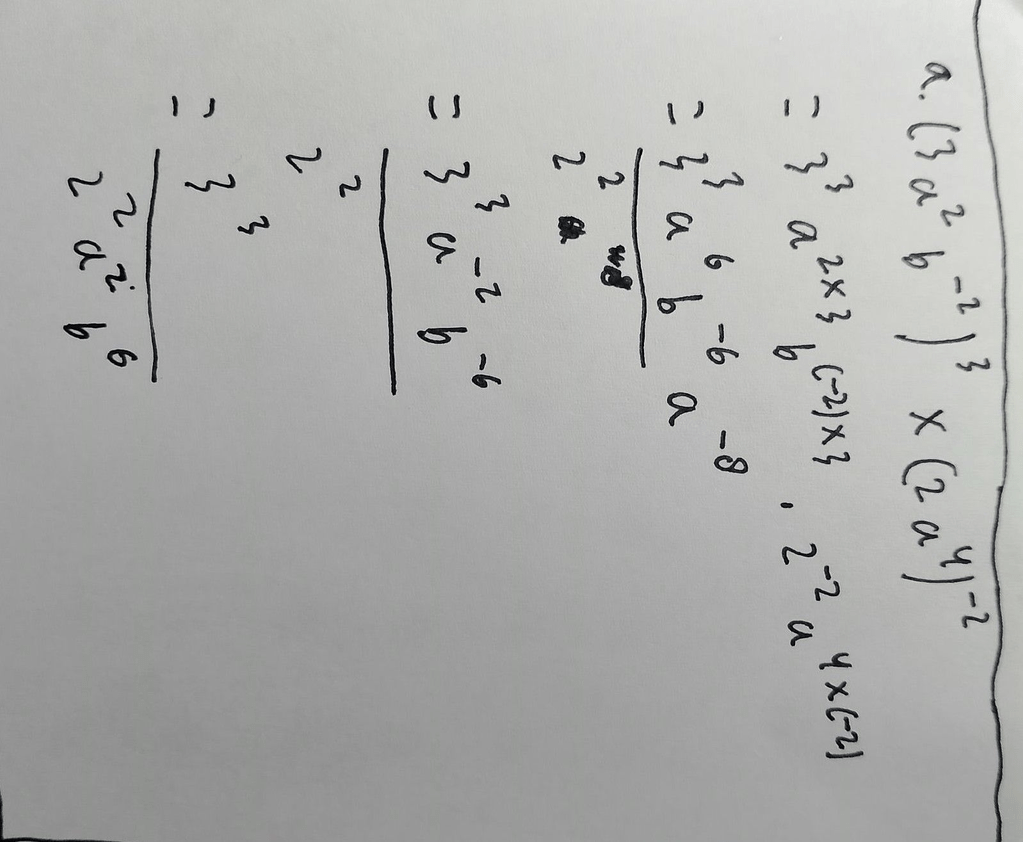 a. (3a²b⁻²)³ × (2a⁴)⁻²
= 3³ a²ˣ³ b⁽⁻²⁾ˣ³ . 2⁻² a⁴ˣ⁽⁻²⁾
= 3³ a⁶ b⁻⁶ a⁻⁸
2²
= 3³ a⁻² b⁻⁶
2²
= 3³
2² a² b⁶